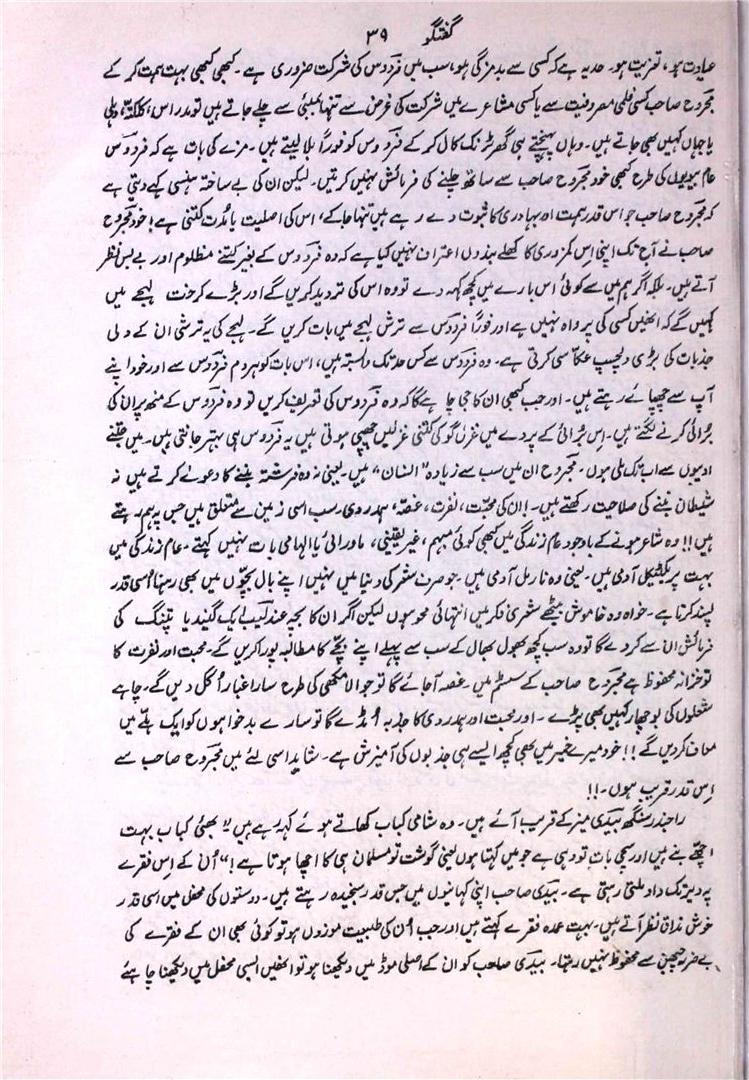 گفتگو ۳۹
عیادت ہو، تعزیت ہو۔ حد یہ ہے کہ کسی سے بدمزگی ہو، سب میں فردوس کی شرکت ضروری ہے۔ کبھی کبھی بہت ہمت کر کے
مجروح صاحب کسی فلمی مصروفیت سے یا کسی مشاعرے میں شرکت کی غرض سے تنہا بمبئی سے چلے جاتے ہیں تو مدراس، کلکتہ، دہلی
یا جہاں کہیں بھی جاتے ہیں۔ وہاں پہنچتے ہی گھر ٹرنک کال کر کے فردوس کو فوراً بلا لیتے ہیں۔ مزے کی بات ہے کہ فردوس
عام بیویوں کی طرح کبھی خود مجروح صاحب سے ساتھ چلنے کی فرمائش نہیں کرتیں۔ لیکن ان کی بے ساختہ ہنسی کہے دیتی ہے
کہ مجروح صاحب جو اس قدر ہمت اور بہادری کا ثبوت دے رہے ہیں تنہا جا کے، اس کی اصلیت یا مدّت کتنی ہے! خود مجروح
صاحب نے آج تک اپنی اِس کمزوری کا کھلے بندوں اعتراف نہیں کیا ہے کہ وہ فردوس کے بغیر کتنے مظلوم اور بے بس نظر
آتے ہیں۔ بلکہ اگر ہم میں سے کوئی اس بارے میں کچھ کہہ دے تو وہ اس کی تردید کریں گے اور بڑے کرخت لہجے میں
کہیں گے کہ انھیں کسی کی پرواہ نہیں ہے اور فوراً فردوس سے ترش لہجے میں بات کریں گے۔ لہجے کی یہ ترشی ان کے دلی
جذبات کی بڑی دلچسپ عکاسی کرتی ہے۔ وہ فردوس سے کس حد تک وابستہ ہیں، اس بات کو ہر دم فردوس سے اور خود اپنے
آپ سے چھپائے رہتے ہیں۔ اور جب کبھی ان کا جی چاہے گا کہ وہ فردوس کی تعریف کریں تو وہ فردوس کے منھ پر ان کی
بُرائی کرنے لگتے ہیں۔ اِس بُرائی کے پردے میں غزل گو کی کتنی غزلیں چھپی ہوتی ہیں یہ فردوس ہی بہتر جانتی ہیں۔ میں جتنے
ادیبوں سے اب تک ملی ہوں۔ مجروح ان میں سب سے زیادہ "انسان" ہیں۔ یعنی نہ وہ فرشتہ بننے کا دعوےٰ کرتے ہیں نہ
شیطان بننے کی صلاحیت رکھتے ہیں۔ ان کی محبت، نفرت، غصہ، ہمدردی۔ سب اسی زمین سے متعلق ہیں جس پر ہم رہتے
ہیں!! وہ شاعر ہونے کے باوجود عام زندگی میں کبھی کوئی مبہم، غیر یقینی، ماورائی یا الہامی بات نہیں کہتے۔ عام زندگی میں
بہت پریکٹیکل آدمی ہیں۔ یعنی وہ نارمل آدمی ہیں۔ جو صرف شعر کی دنیا میں نہیں اپنے بال بچّوں میں بھی رہنا اُسی قدر
پسند کرتا ہے۔ خواہ وہ خاموش بیٹھے شعری فکر میں انتہائی محو ہوں لیکن اگر ان کا بچہ عندلیب ایک گیند یا پتنگ کی
فرمائش ان سے کر دے گا تو وہ سب کچھ بھول بھال کے سب سے پہلے اپنے بچّے کا مطالبہ پورا کریں گے۔ محبت اور نفرت کا
تو خزانہ محفوظ ہے مجروح صاحب کے سسٹم میں۔ غصہ آجائے گا تو جوالا مکھی کی طرح سارا غبار اُگل دیں گے۔ چاہے
شعلوں کی بوچھار کہیں بھی پڑے۔ اور محبت اور ہمدردی کا جذبہ اُمڈے گا تو سارے بدخواہوں کو ایک پلّے میں
معاف کر دیں گے!! خود میرے خمیر میں بھی کچھ ایسے ہی جذبوں کی آمیزش ہے۔ شاید اسی لئے میں مجروح صاحب سے
اِس قدر قریب ہوں۔!!
راجندر سنگھ بیدی میز کے قریب آئے ہیں۔ وہ شامی کباب کھاتے ہوئے کہہ رہے ہیں "بھئی کباب بہت
اچھے بنے ہیں اور سچی بات تو وہی ہے جو میں کہتا ہوں یعنی گوشت تو مسلمان ہی کا اچھا ہوتا ہے!" اُن کے اِس فقرے
پہ دیر تک داد ملتی رہتی ہے۔ بیدی صاحب اپنی کہانیوں میں جس قدر سنجیدہ رہتے ہیں۔ دوستوں کی محفل میں اسی قدر
خوش مذاق نظر آتے ہیں۔ بہت عمدہ فقرے کہتے ہیں اور جب اُن کی طبیعت موزوں ہو تو کوئی بھی ان کے فقرے کی
بے ضرر چبھن سے محفوظ نہیں رہتا۔ بیدی صاحب کو ان کے اصلی موڈ میں دیکھنا ہو تو انھیں ایسی محفل میں دیکھنا چاہئے